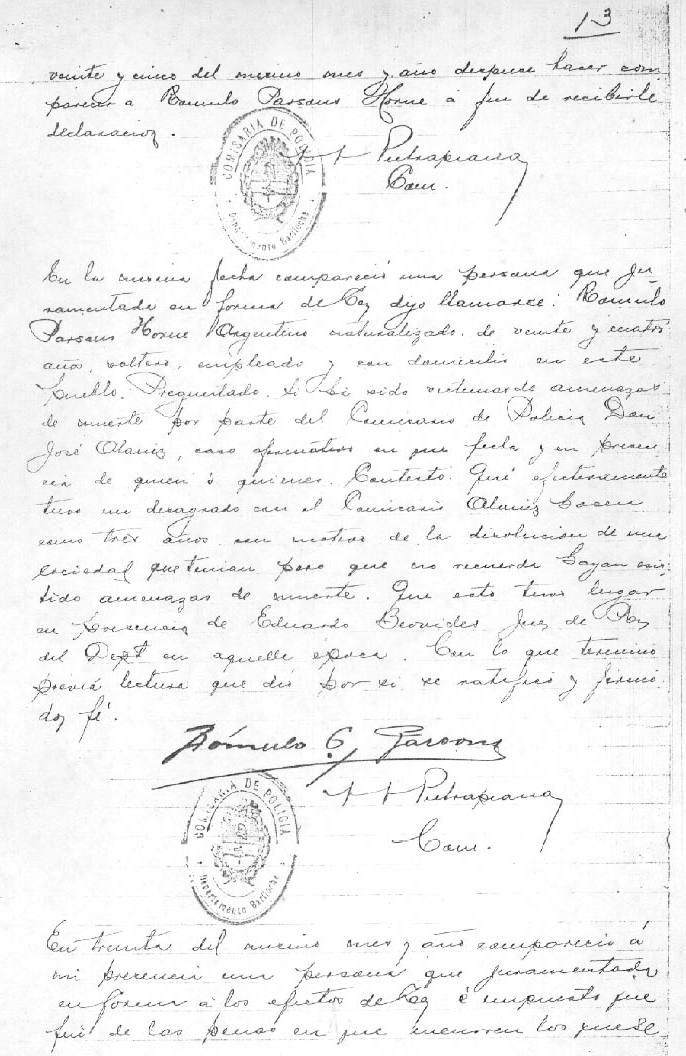 13
veinte y cinco del mismo mes y año despues hacer com
parecer a Romulo Parsons Horne á fin de recibirle
declaracion.
COMISARIA DE POLICIA
Departamento Bariloche
Pietrapiana
Com.
En la misma fecha compareció una persona que ju
ramentada en forma de Ley dijo llamarse: Romulo
Parsons Horne Argentino naturalizado de veinte y cuatro
años, soltero, empleado y con domicilio en este
pueblo. Preguntado. Si ha sido victima de amenazas
de muerte por parte del Comisario de Policia Don
José Alaniz, caso afirmativo en que fecha y en presen
cia de quien ó quienes. Contestó. Que efectivamente
tuvo un desagrado con el Comisario Alaniz hacen
como tres años con motivo de la disolucion de una
sociedad que tenian pero que no recuerda hayan exis
tido amenazas de muerte. Que esto tuvo lugar
en presencia de Eduardo Juez de Paz
del Dept en aquella época. Con lo que termino
previa lectura que dió por si se ratificó y firmó
doy fé.
Rómulo G. Parsons
COMISARIA DE POLICIA
Departamento Bariloche
Pietrapiana
Com.
En treinta del mismo mes y año compareció á
mi presencia una persona que juramentada
en forma á los efectos de Ley é impuesto que
fué de las penas en que incurren los que se